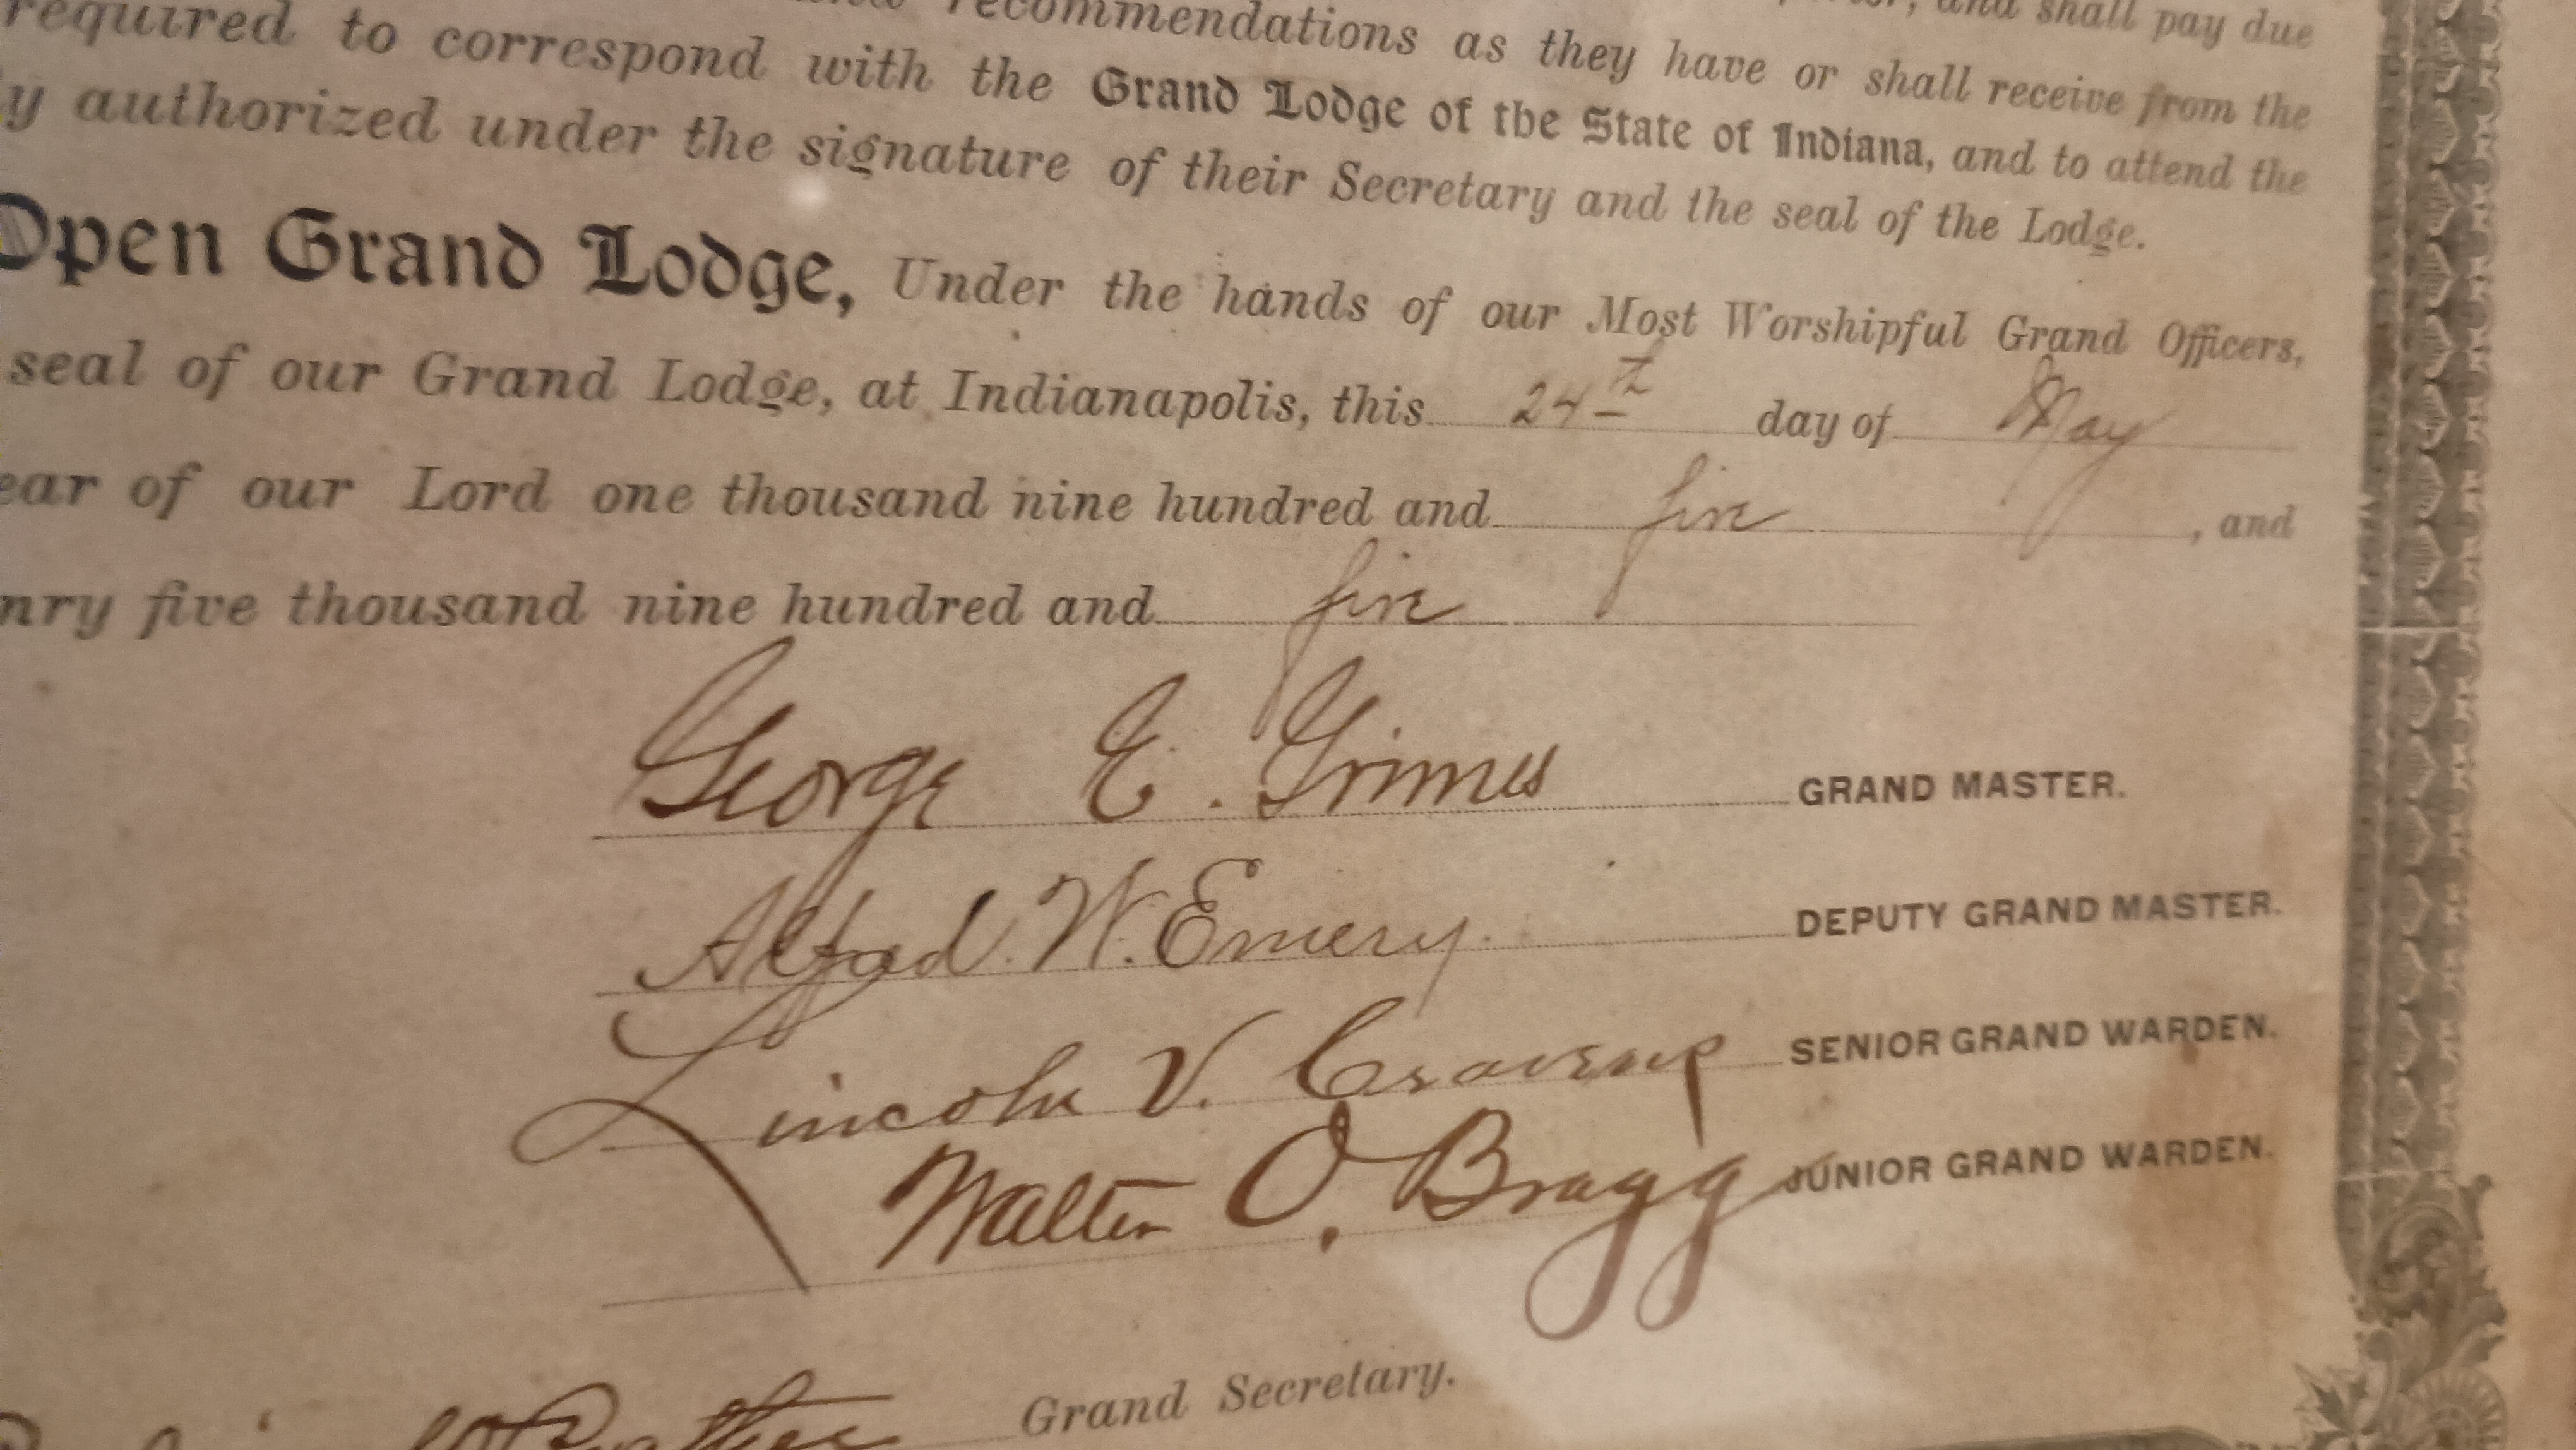 recommendations as they have or shall receive from the
required to correspond with the Grand Lodge of the State of Indiana, and to attend the
authorized under the signature of their Secretary and the seal of the Lodge.
and shall pay due
Open Grand Lodge, Under the hands of our Most Worshipful Grand Officers,
seal of our Grand Lodge, at Indianapolis, this 24th day of May
of our Lord one thousand nine hundred and five, and
five thousand nine hundred and five
George E. Grimes GRAND MASTER.
Alfred. W. Emery. DEPUTY GRAND MASTER.
Lincoln V. Cravens SENIOR GRAND WARDEN.
Walter O. Bragg JUNIOR GRAND WARDEN.
Grand Secretary.